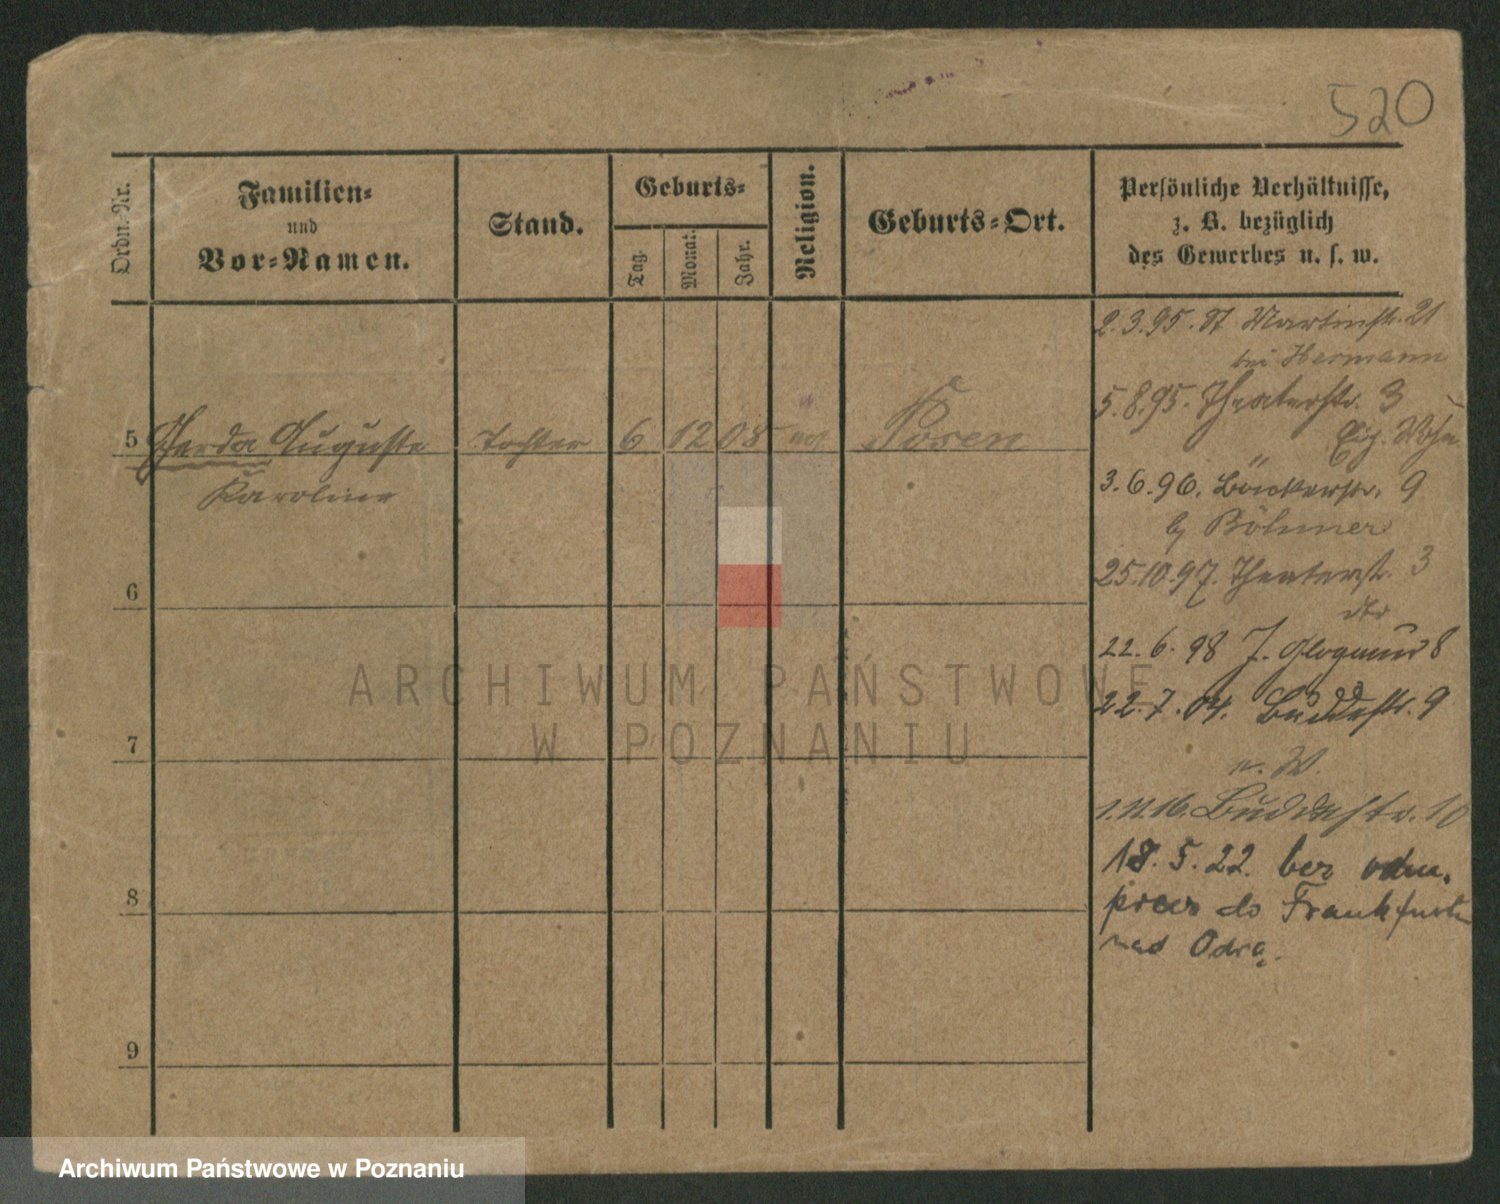 520
Ordn.-Nr.
Familien-
und
Vor-Namen.
Stand.
Geburts-
Tag.
Monat.
Jahr.
Religion.
Geburts-Ort.
Persönliche Verhältnisse,
z. B. bezüglich
des Gewerbes u. s. w.
2.3.95. St Martinstr. 21
bei Hermann
5.8.95. Theaterstr. 3
Eig. Wohn
5 Gerda Auguste Tochter 6 12 08 ev Posen
Karoline
3.6.96. Bäckerstr. 9
b/ Böhmer
25.10.97. Theaterstr. 3
6
22.6.98 J. Glogauer 8
22.7.04. Buddestr. 9
7
n. W.
1.11.16. Buddestr. 10
18.5.22. bez
8
do Frankfurtu
nad Odrą.
9
ARCHIWUM PAŃSTWOWE
W POZNANIU
Archiwum Państwowe w Poznaniu